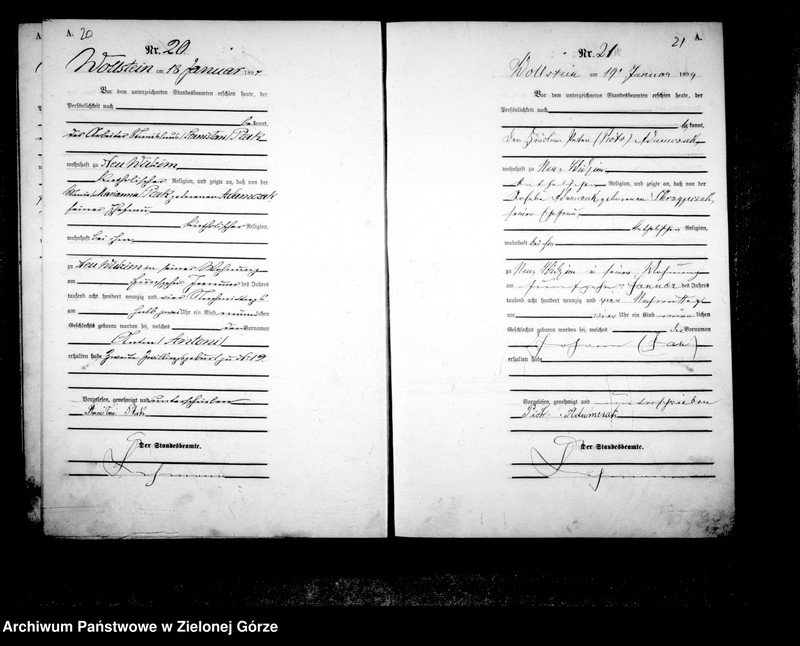 A. 20
Nr. 20
Wollstein am 18 Januar 1894
Vor dem unterzeichneten Standesbeamten erschien heute, der
Persönlichkeit nach
bekannt,
der Arbeiter Stanislaus (Stanislaw) Ptak
wohnhaft zu Neu Widzim
katholischer Religion, und zeigte an, daß von der
Marianna Ptak geborenen Adamczak
seiner Ehefrau
katholischer Religion,
wohnhaft bei ihm
zu Neu Widzim in seiner Wohnung
am Januar des Jahres
tausend acht hundert neunzig und vier Nachmittags
um halb zwei Uhr ein Kind männlichen
Geschlechts geboren worden sei, welches den Vornamen
Anton (Antoni)
erhalten habe Zweite Zwillingsgeburt zu No 19.
Vorgelesen, genehmigt und unterschrieben
Ptak
Der Standesbeamte.
21 A.
Nr. 21
Wollstein am 19. Januar 1894
Vor dem unterzeichneten Standesbeamten erschien heute, der
Persönlichkeit nach
bekannt,
Peter (Piotr) Adamczak
wohnhaft zu Neu Widzim
katholischer Religion, und zeigte an, daß von der
Adamczak, geborenen
seiner Ehefrau
katholischer Religion,
wohnhaft bei ihm
zu Neu Widzim in seiner Wohnung
am fünfzehn Januar des Jahres
tausend acht hundert neunzig und vier Nachmittags
um vier Uhr ein Kind männlichen
Geschlechts geboren worden sei, welches den Vornamen
Johann (Jan)
erhalten habe
Vorgelesen, genehmigt und unterschrieben
Piotr Adamczak
Der Standesbeamte.
Archiwum Państwowe w Zielonej Górze